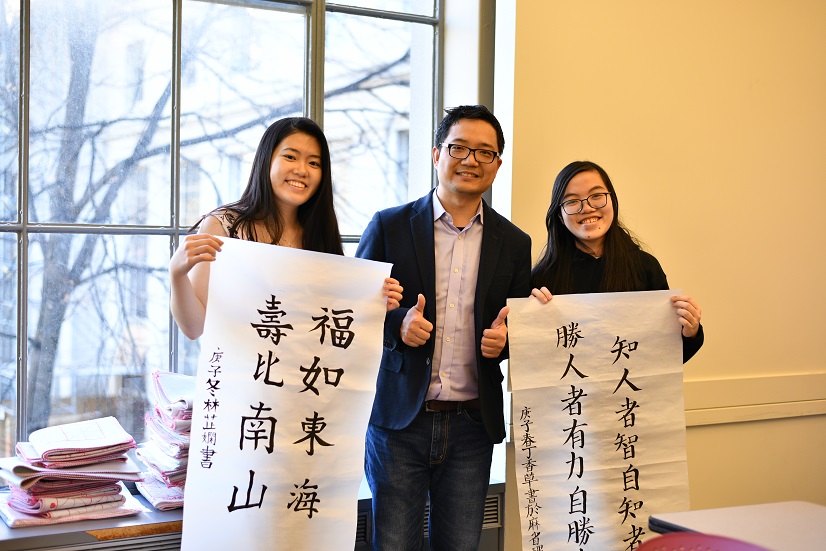 福如東海
壽比南山
庚子冬林芷嫻書
知人者智自知者
勝人者有力自勝
庚子春丁香草書於麻省理